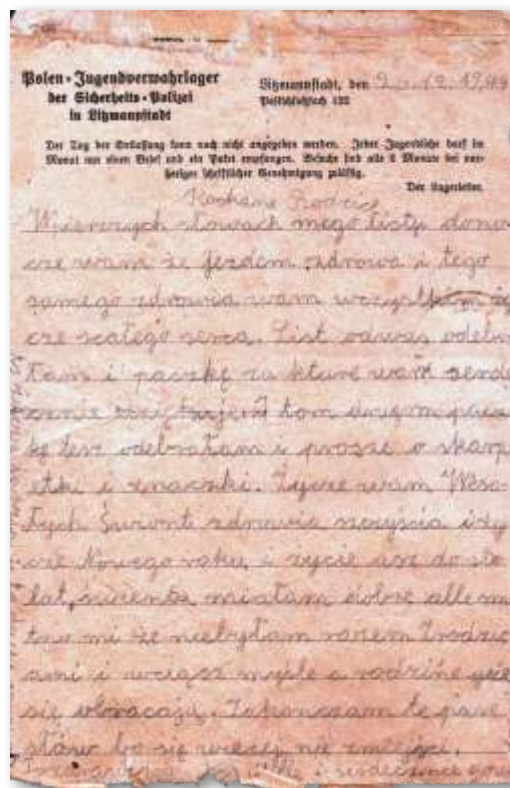 Polen-Jugendverwahrlager
der Sicherheits-Polizei
in Litzmannstadt
Litzmannstadt, den 12. 1944
Postschließfach 132
Der Tag der Entlassung kann noch nicht angegeben werden. Jeder Jugendliche darf im
Monat nur einen Brief und ein Paket empfangen. Besuche sind alle 2 Monate bei vor-
heriger schriftlicher Genehmigung zulässig.
Der Lagerleiter.
Kochane Rodzice
W słowach mego listu dono-
sze wam że jezdem zdrowa i tego
samego zdrowia wam wszystkiem ży
cze scałego serca. List odwas odebra
łam i paczkę za kture wam serde
cznie tom drugom pacz
kę tesz odebrałam i prosze o skarp
etki i znaczki. Życze wam Weso-
łych Świont zdrowia i ży
cze Nowego roku i życie asz do sto
lat, miałam dobre alle
mi że niebyłam razem Zrodzic
ami i wciąsz myśle o rodzine
się obracają. Zakonczam te pare
słów bo się wiecej nie zmiejści.
i serdecznie